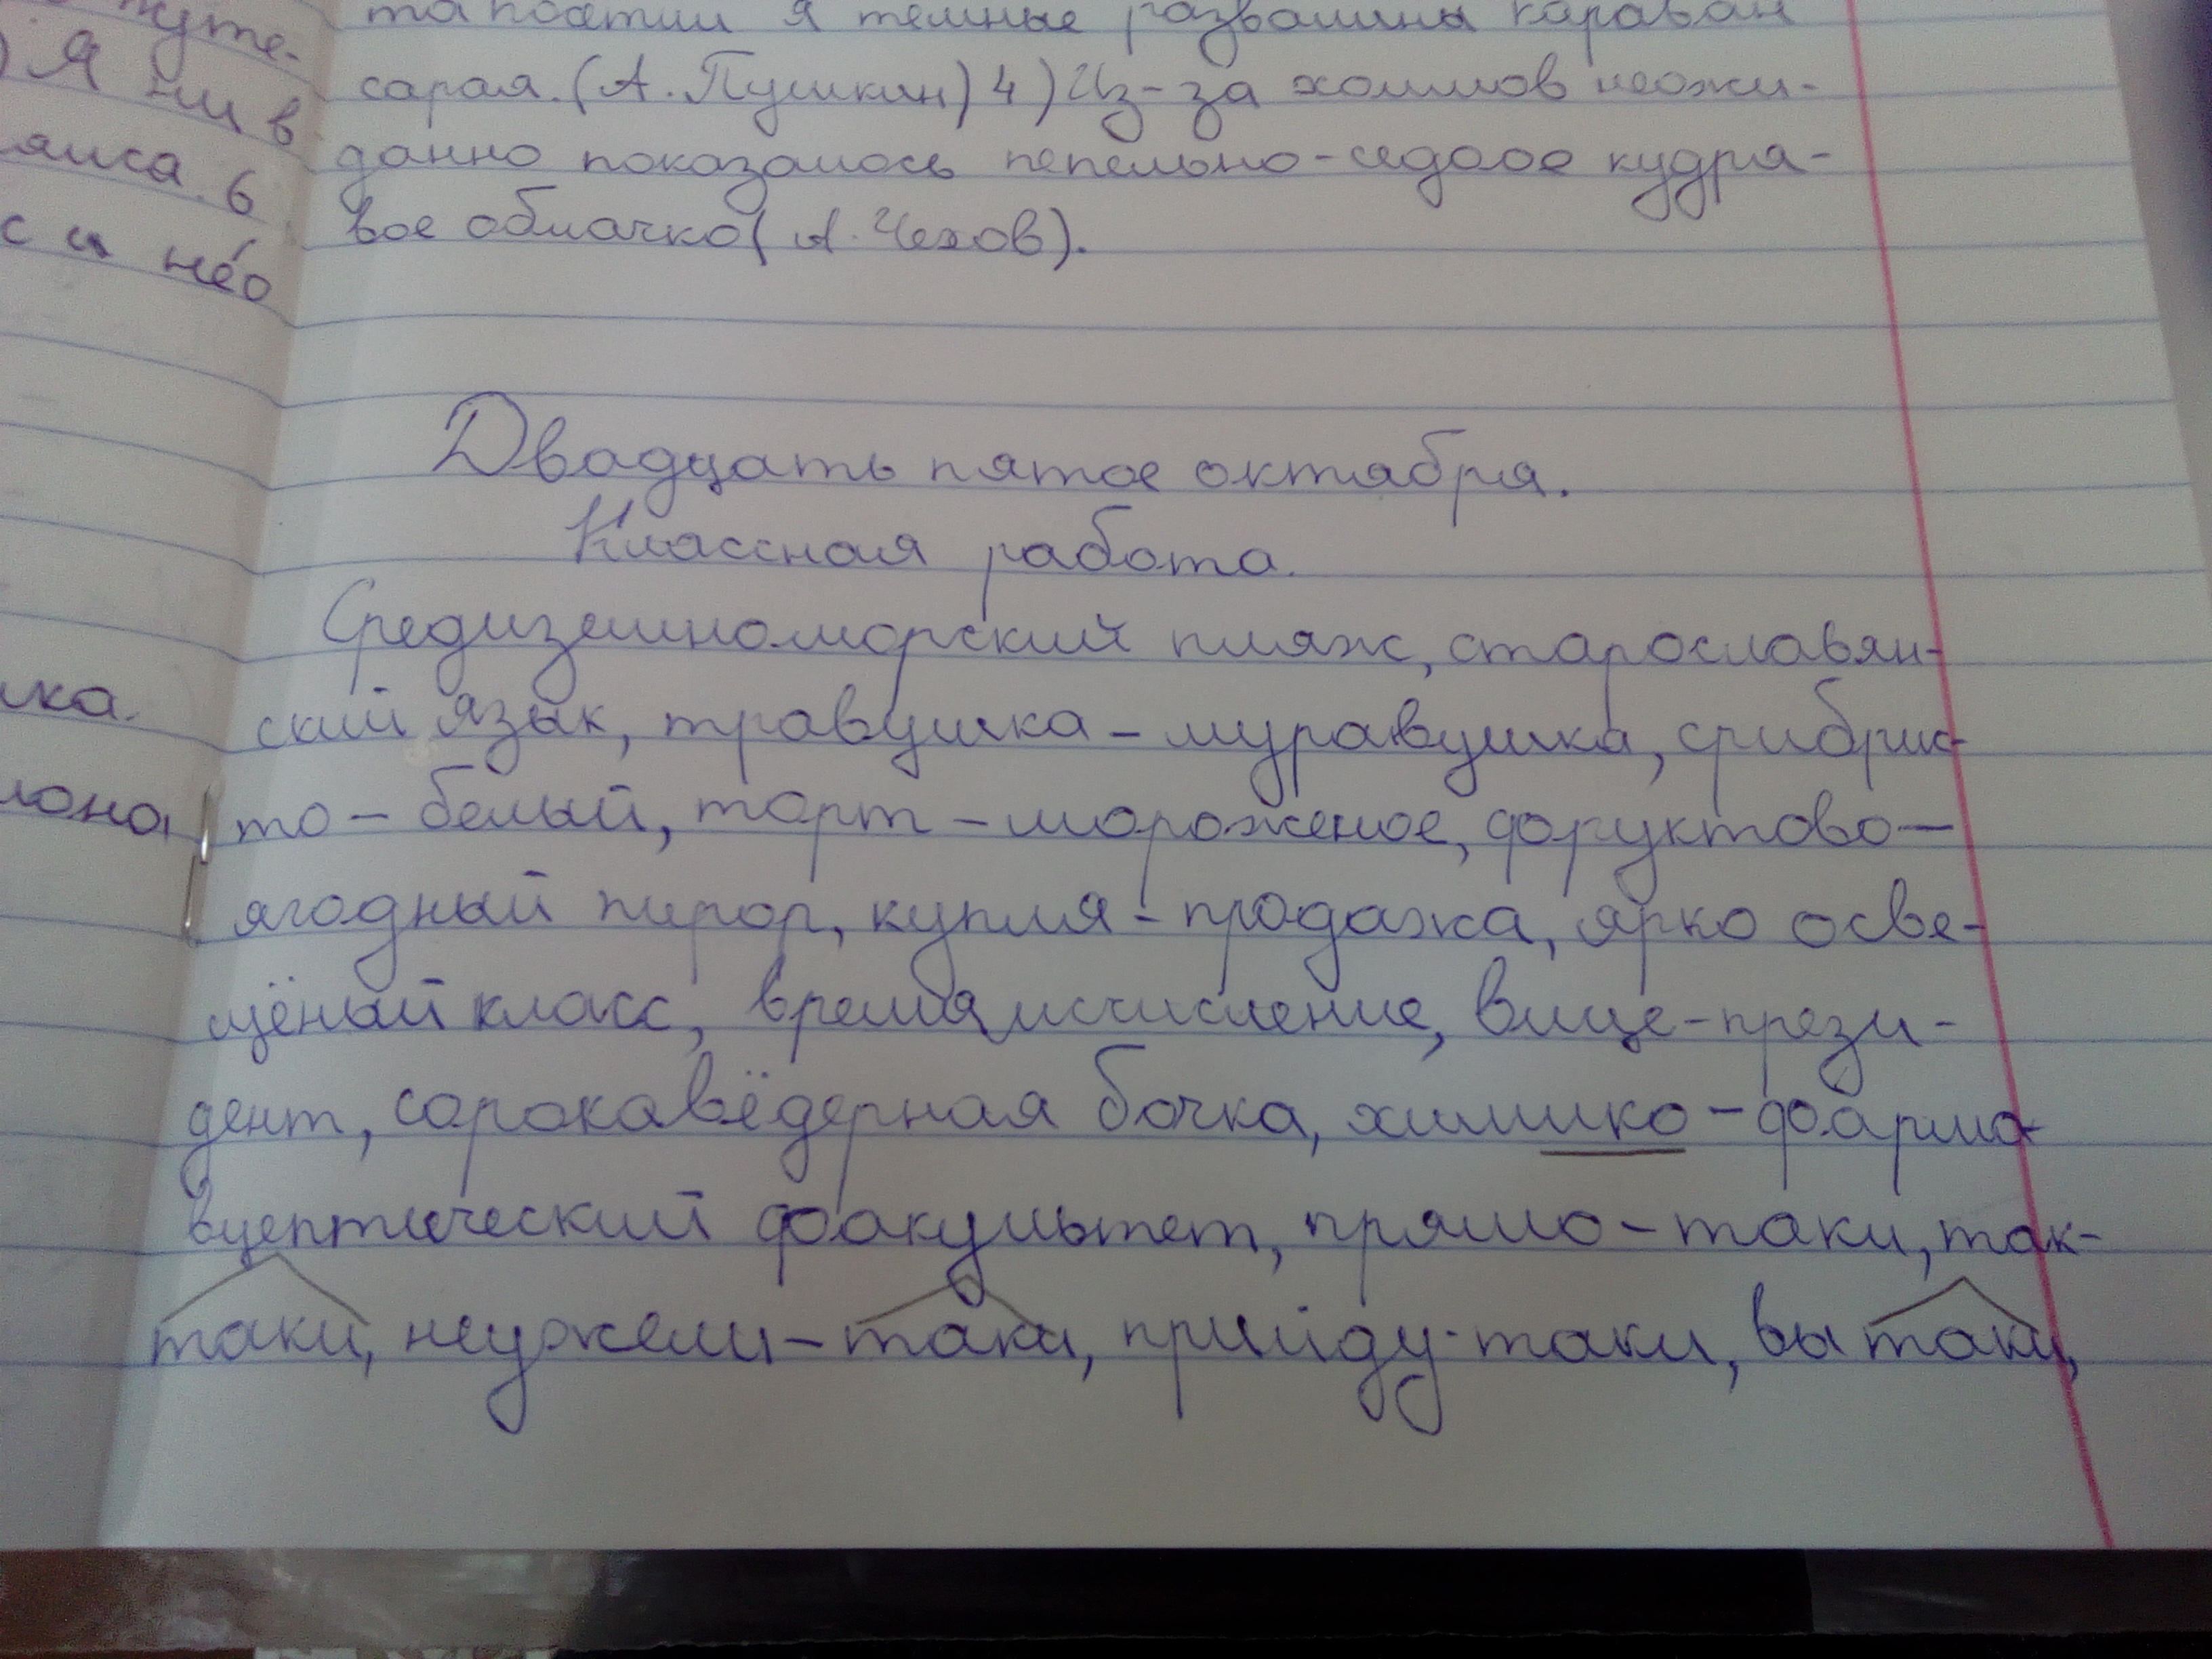 жуте-
Я ни в
6
с и нео
ка.
посетил я темные развалины караван
сарая. (А. Пушкин) 4) Из-за холмов неожи-
данно показалось пепельно-седоое кудря-
вое облачко( А. Чехов).
Двадцать пятое октября.
Классная работа.
Средиземноморский пляж, старославян-
ский язык, травушка - муравушка, срибрис-
то - белый, торт - мороженое, фруктово-
ягодный пирог, купля - продажа, ярко осве-
щёный класс, времяисчисление, вице-прези-
дент, сорокавёдерная бочка, химико - фарма-
вцептический факультет, прямо - таки, так-
таки, неужели - таки, прийду-таки, вы таки,